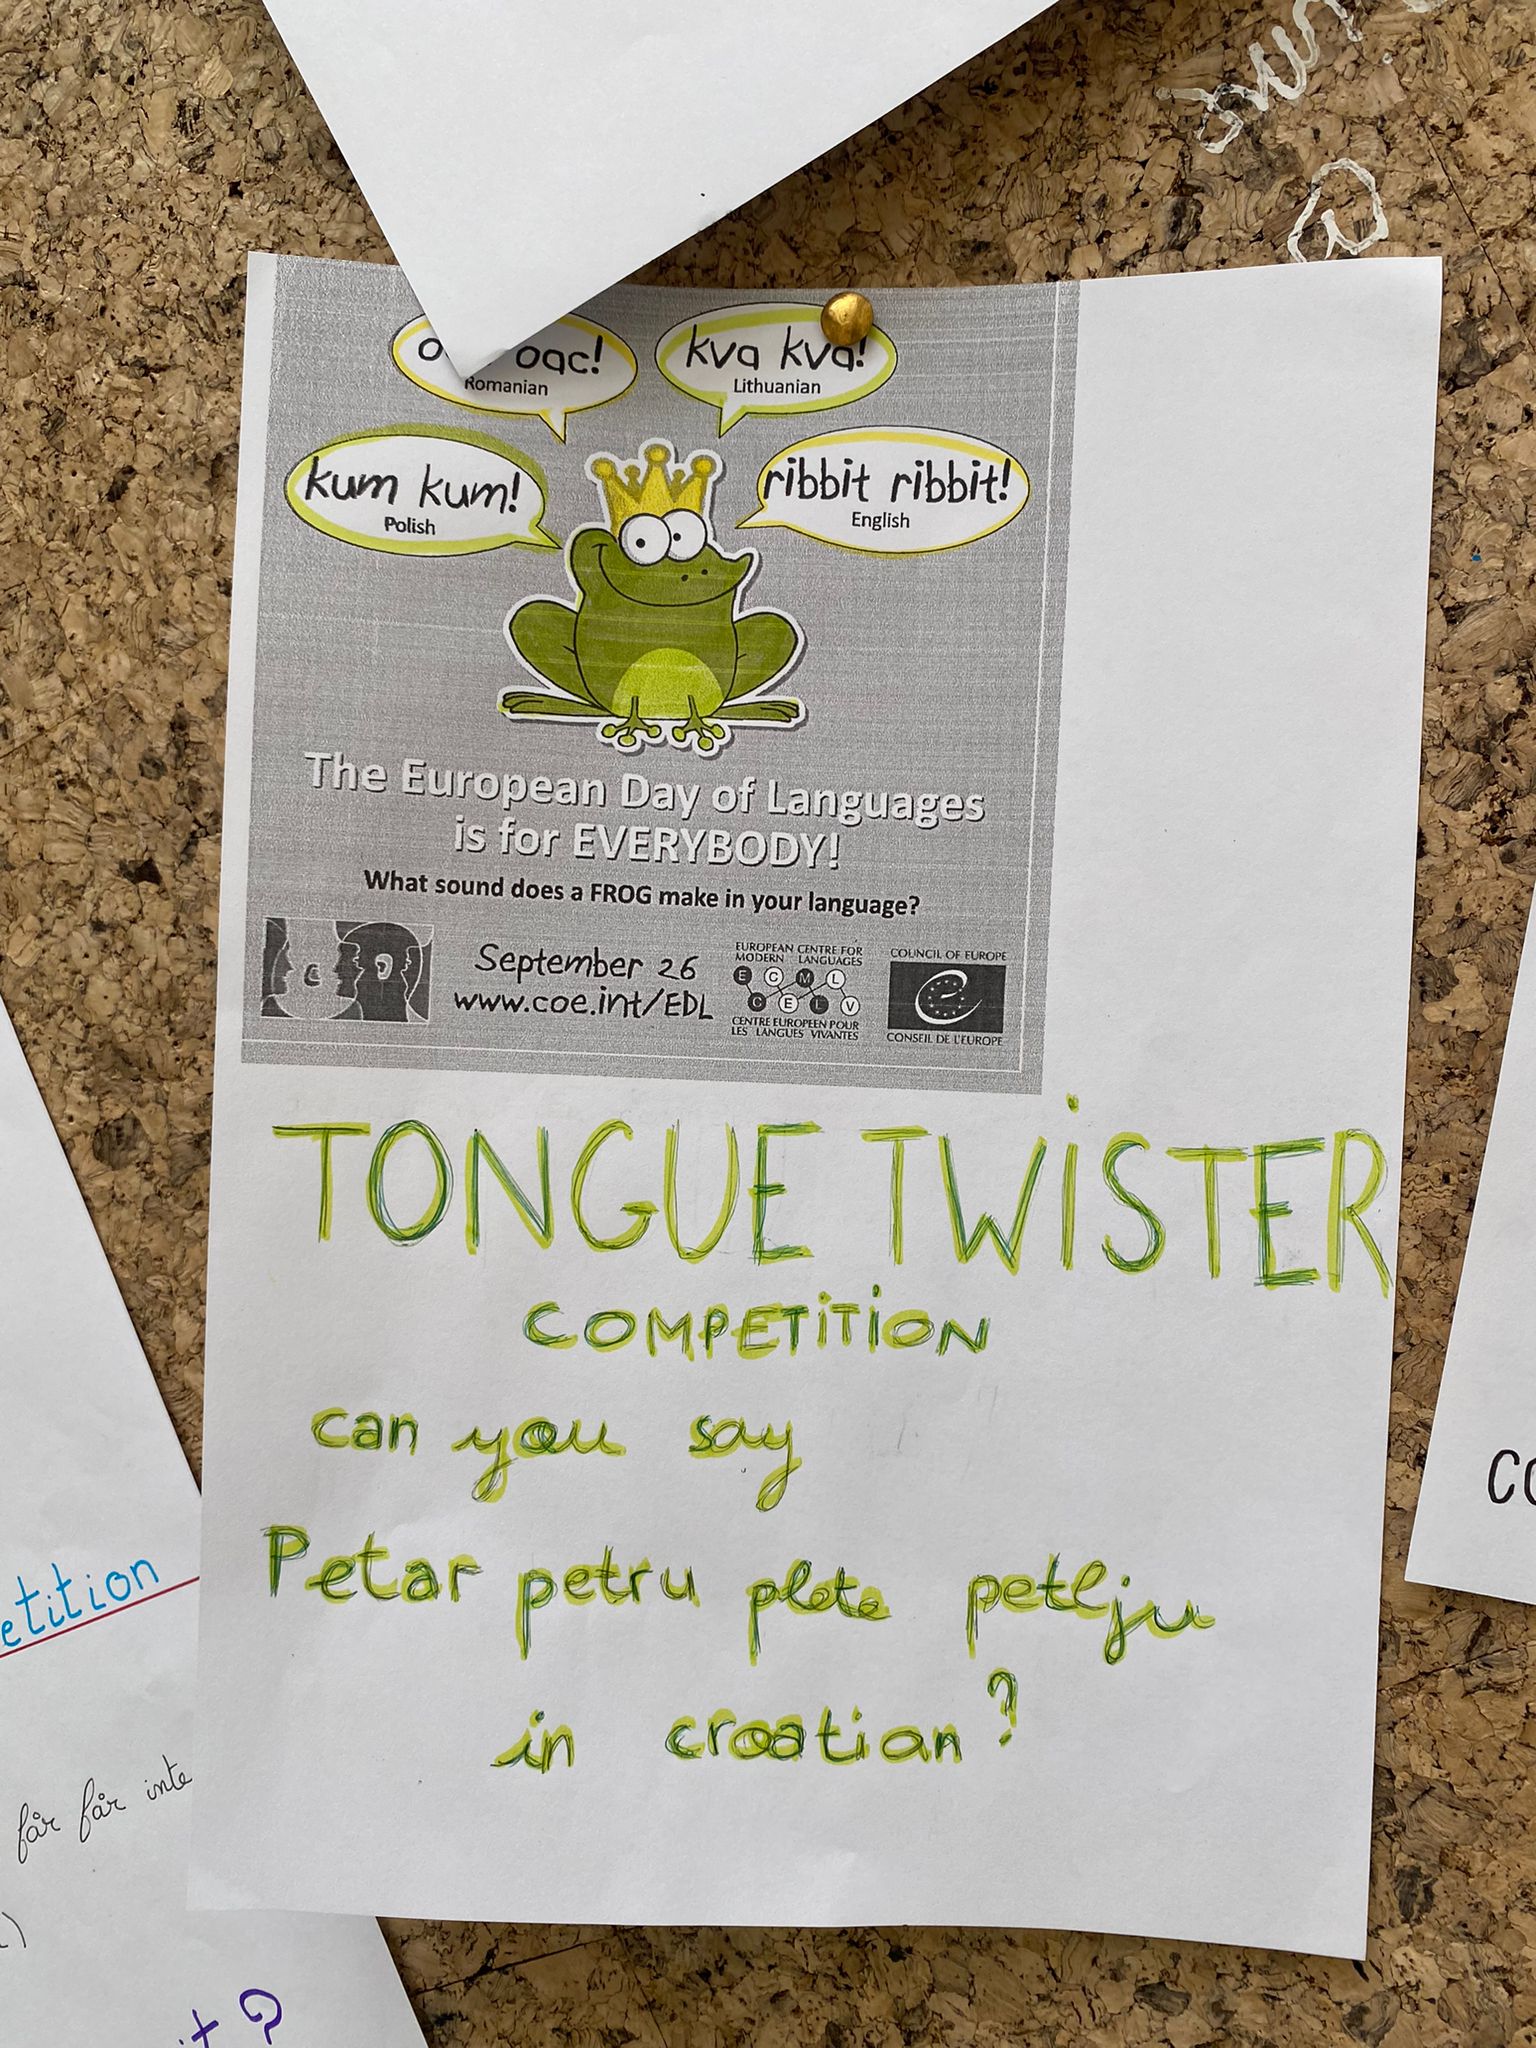 oac!
Romanian
kva kva!
Lithuanian
kum kum!
Polish
ribbit ribbit!
English
The European Day of Languages
is for EVERYBODY!
What sound does a FROG make in your language?
September 26
www.coe.int/EDL
EUROPEAN CENTRE FOR
MODERN LANGUAGES
E C M L
C E L V
CENTRE EUROPEEN POUR
LES LANGUES VIVANTES
COUNCIL OF EUROPE
CONSEIL DE L'EUROPE
TONGUE TWISTER
COMPETITION
can you say
Petar petru plete petlju
in croatian?
etition
får får inte